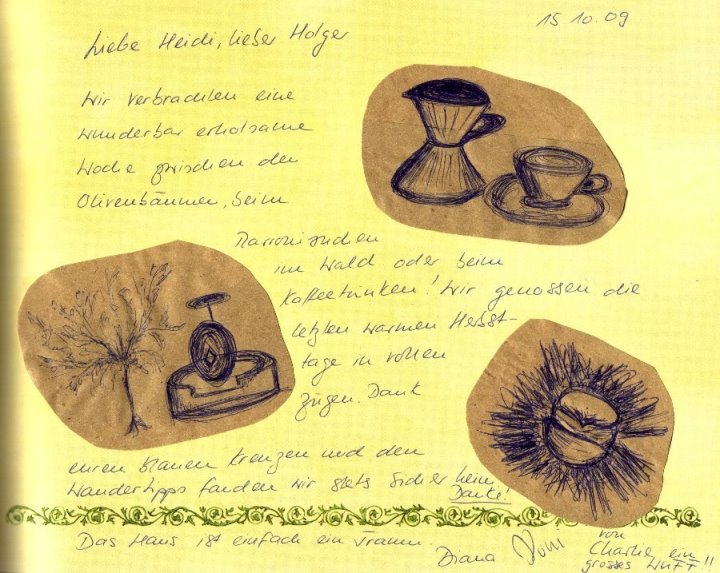 15.10.09
Liebe Heidi, lieber Holger
Wir verbrachten eine
wunderbar erholsame
Woche zwischen den
Olivenbäumen, beim
Marronisuchen
im Wald oder beim
Kaffeetrinken! Wir genossen die
letzten warmen Herbst-
tage in vollen
Zügen. Dank
euren blauen Kreuzen und den
Wandertipps fanden wir stets sicher heim.
Danke!
Das Haus ist einfach ein Traum.
Diana
von
Charlie ein
grosses WUFF!!